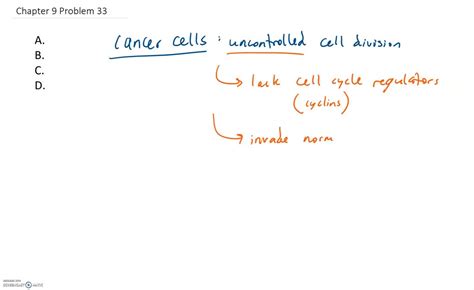 Chapter 9 Problem 33
A.
B.
C.
D.
Cancer cells : uncontrolled cell division
lack cell cycle regulators
(cyclins)
invade norm